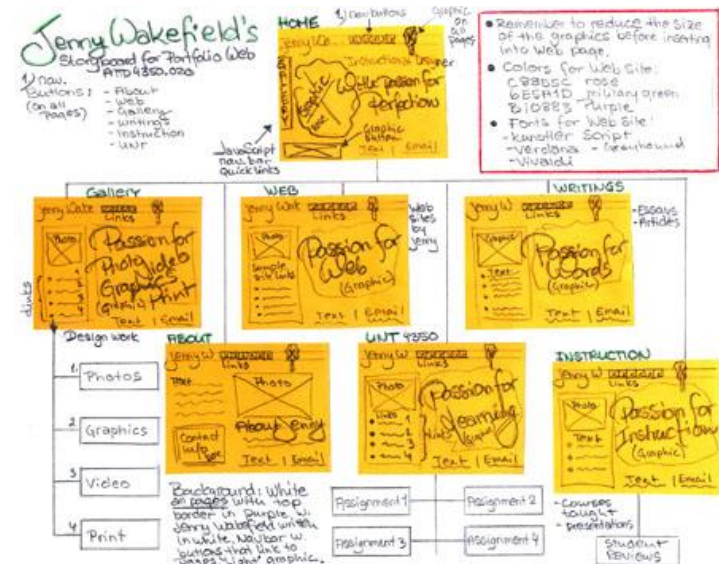 Jenny Wakefield's
Storyboard for Portfolio Web
ATTD 4350.020
1) nav.
Buttons:
(on all
Pages)
- About
- Web
- Gallery
- Writings
- Instruction
- UNT
HOME
1) nav buttons
graphic
on
all pages
Jenny Wa...
Instructional Designer
With Passion for
Perfection
Graphic
Graphic
button
Text | Email
JavaScript
nav. bar
quick links
• Remember to reduce the size
of the graphics before inserting
into Web page.
• Colors for Web Site:
C88D5C rose
6E5A1D military green
B10883 Purple
• Fonts for Web Site:
- Kunstler Script
- Verdana - Greyhound
- Vivaldi
Gallery
Jenny Wake
Links
Photo
Passion for
Photo Video
Graphics
Print
Text | Email
Links
WEB
Jenny Wak
Links
Photo
Sample
site links
Passion for
Web
(Graphic)
Text | Email
Web
sites by
Jenny
WRITINGS
Jenny W
Links
Graphic
Text
Passion for
Words
(Graphic)
Text | Email
- Essays
- Articles
Design work
1. Photos
2 Graphics
3 Video
4 Print
ABOUT
Jenny W
Links
Text
Photo
About Jenny
Contact
Info
Text | Email
UNT 4350
Jenny W
Links
Photo
Links
1
2
3
4
Passion for
Learning
(Graphic)
Text | Email
INSTRUCTION
Jenny W
Links
Photo
Text
Passion for
Instruction
(Graphic)
Text | Email
- Courses
taught
- presentations
Student
Reviews
Background: White
on pages with top
border in Purple w.
Jenny Wakefield written
in white. Navbar w.
buttons that link to
pages. "Light" graphic.
Assignment 1
Assignment 2
Assignment 3
Assignment 4